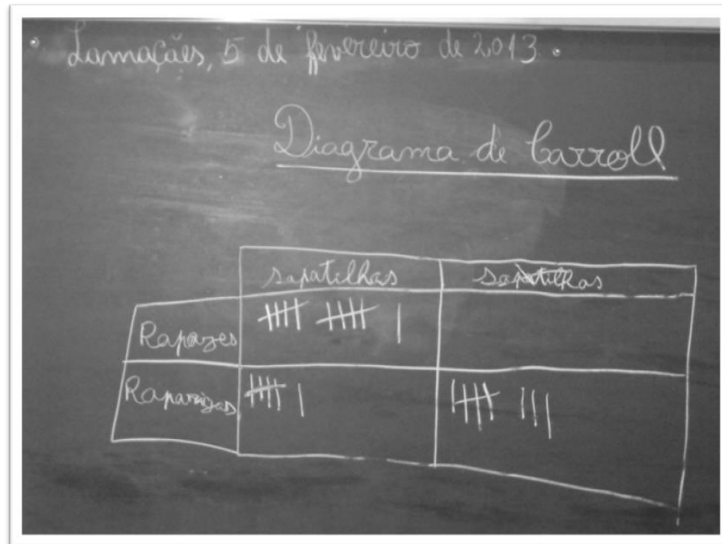 Lamaçães, 5 de fevereiro de 2013.
Diagrama de Carroll
sapatilhas sapatilhas
Rapazes
Raparigas